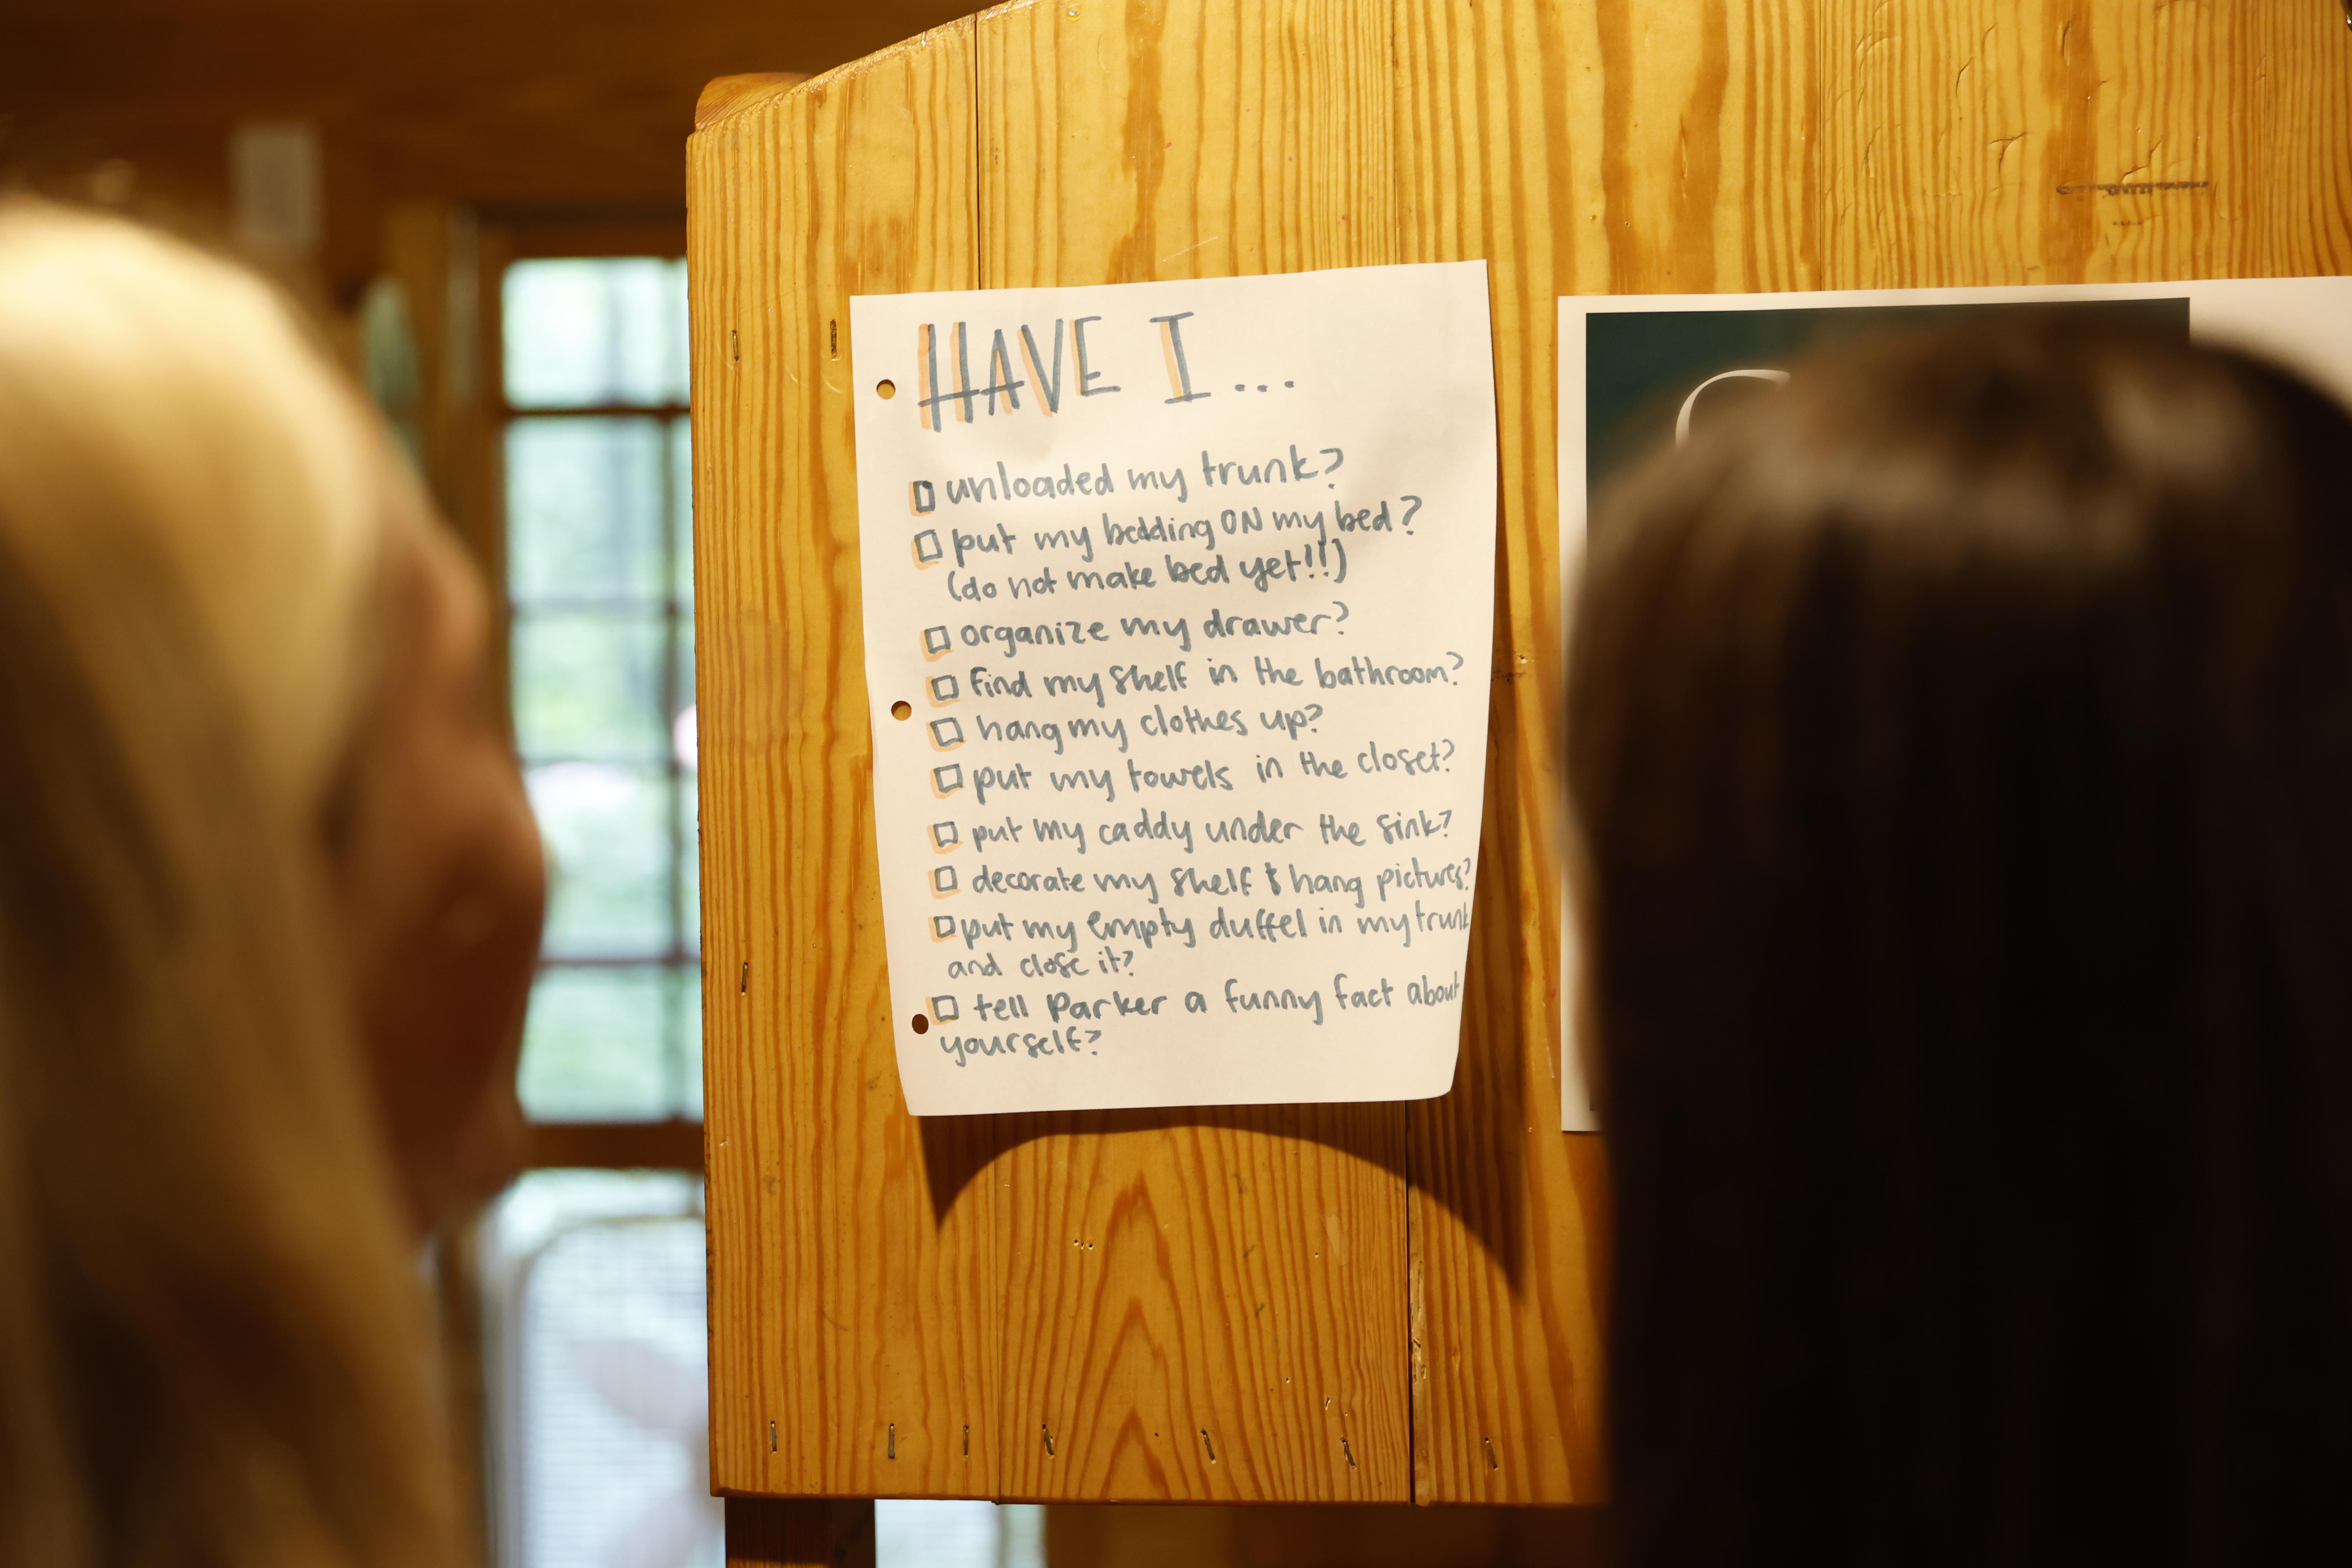 HAVE I...
unloaded my trunk?
put my bedding ON my bed?
(do not make bed yet!!)
organize my drawer?
find my shelf in the bathroom?
hang my clothes up?
put my towels in the closet?
put my caddy under the sink?
decorate my shelf & hang pictures?
put my empty duffel in my trunk
and close it?
tell Parker a funny fact about
yourself?